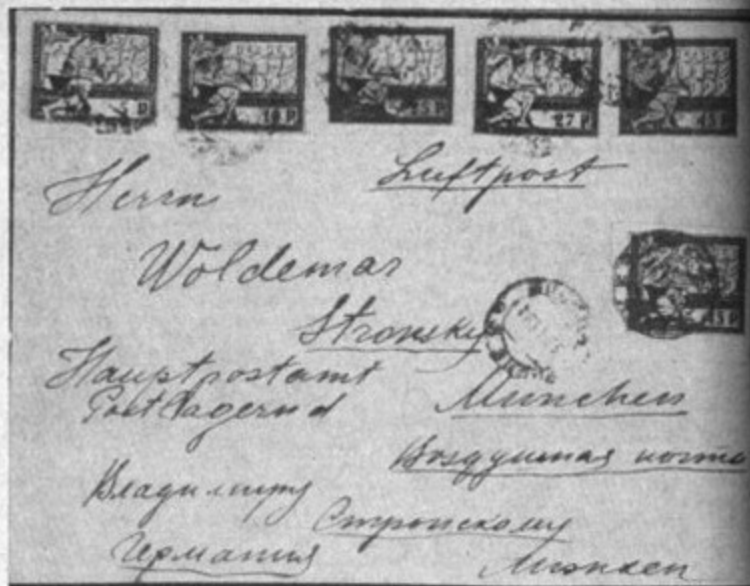 10 р
25 р
27 р
45 р
Luftpost
Herrn
Woldemar
45 р
Stronsky
Hauptpostamt
Postlagernd
München
Воздушная почта
Владимиру
Стронскому
Германия
Мюнхен